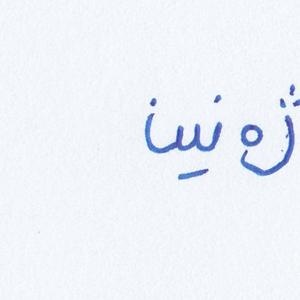 ژەنین